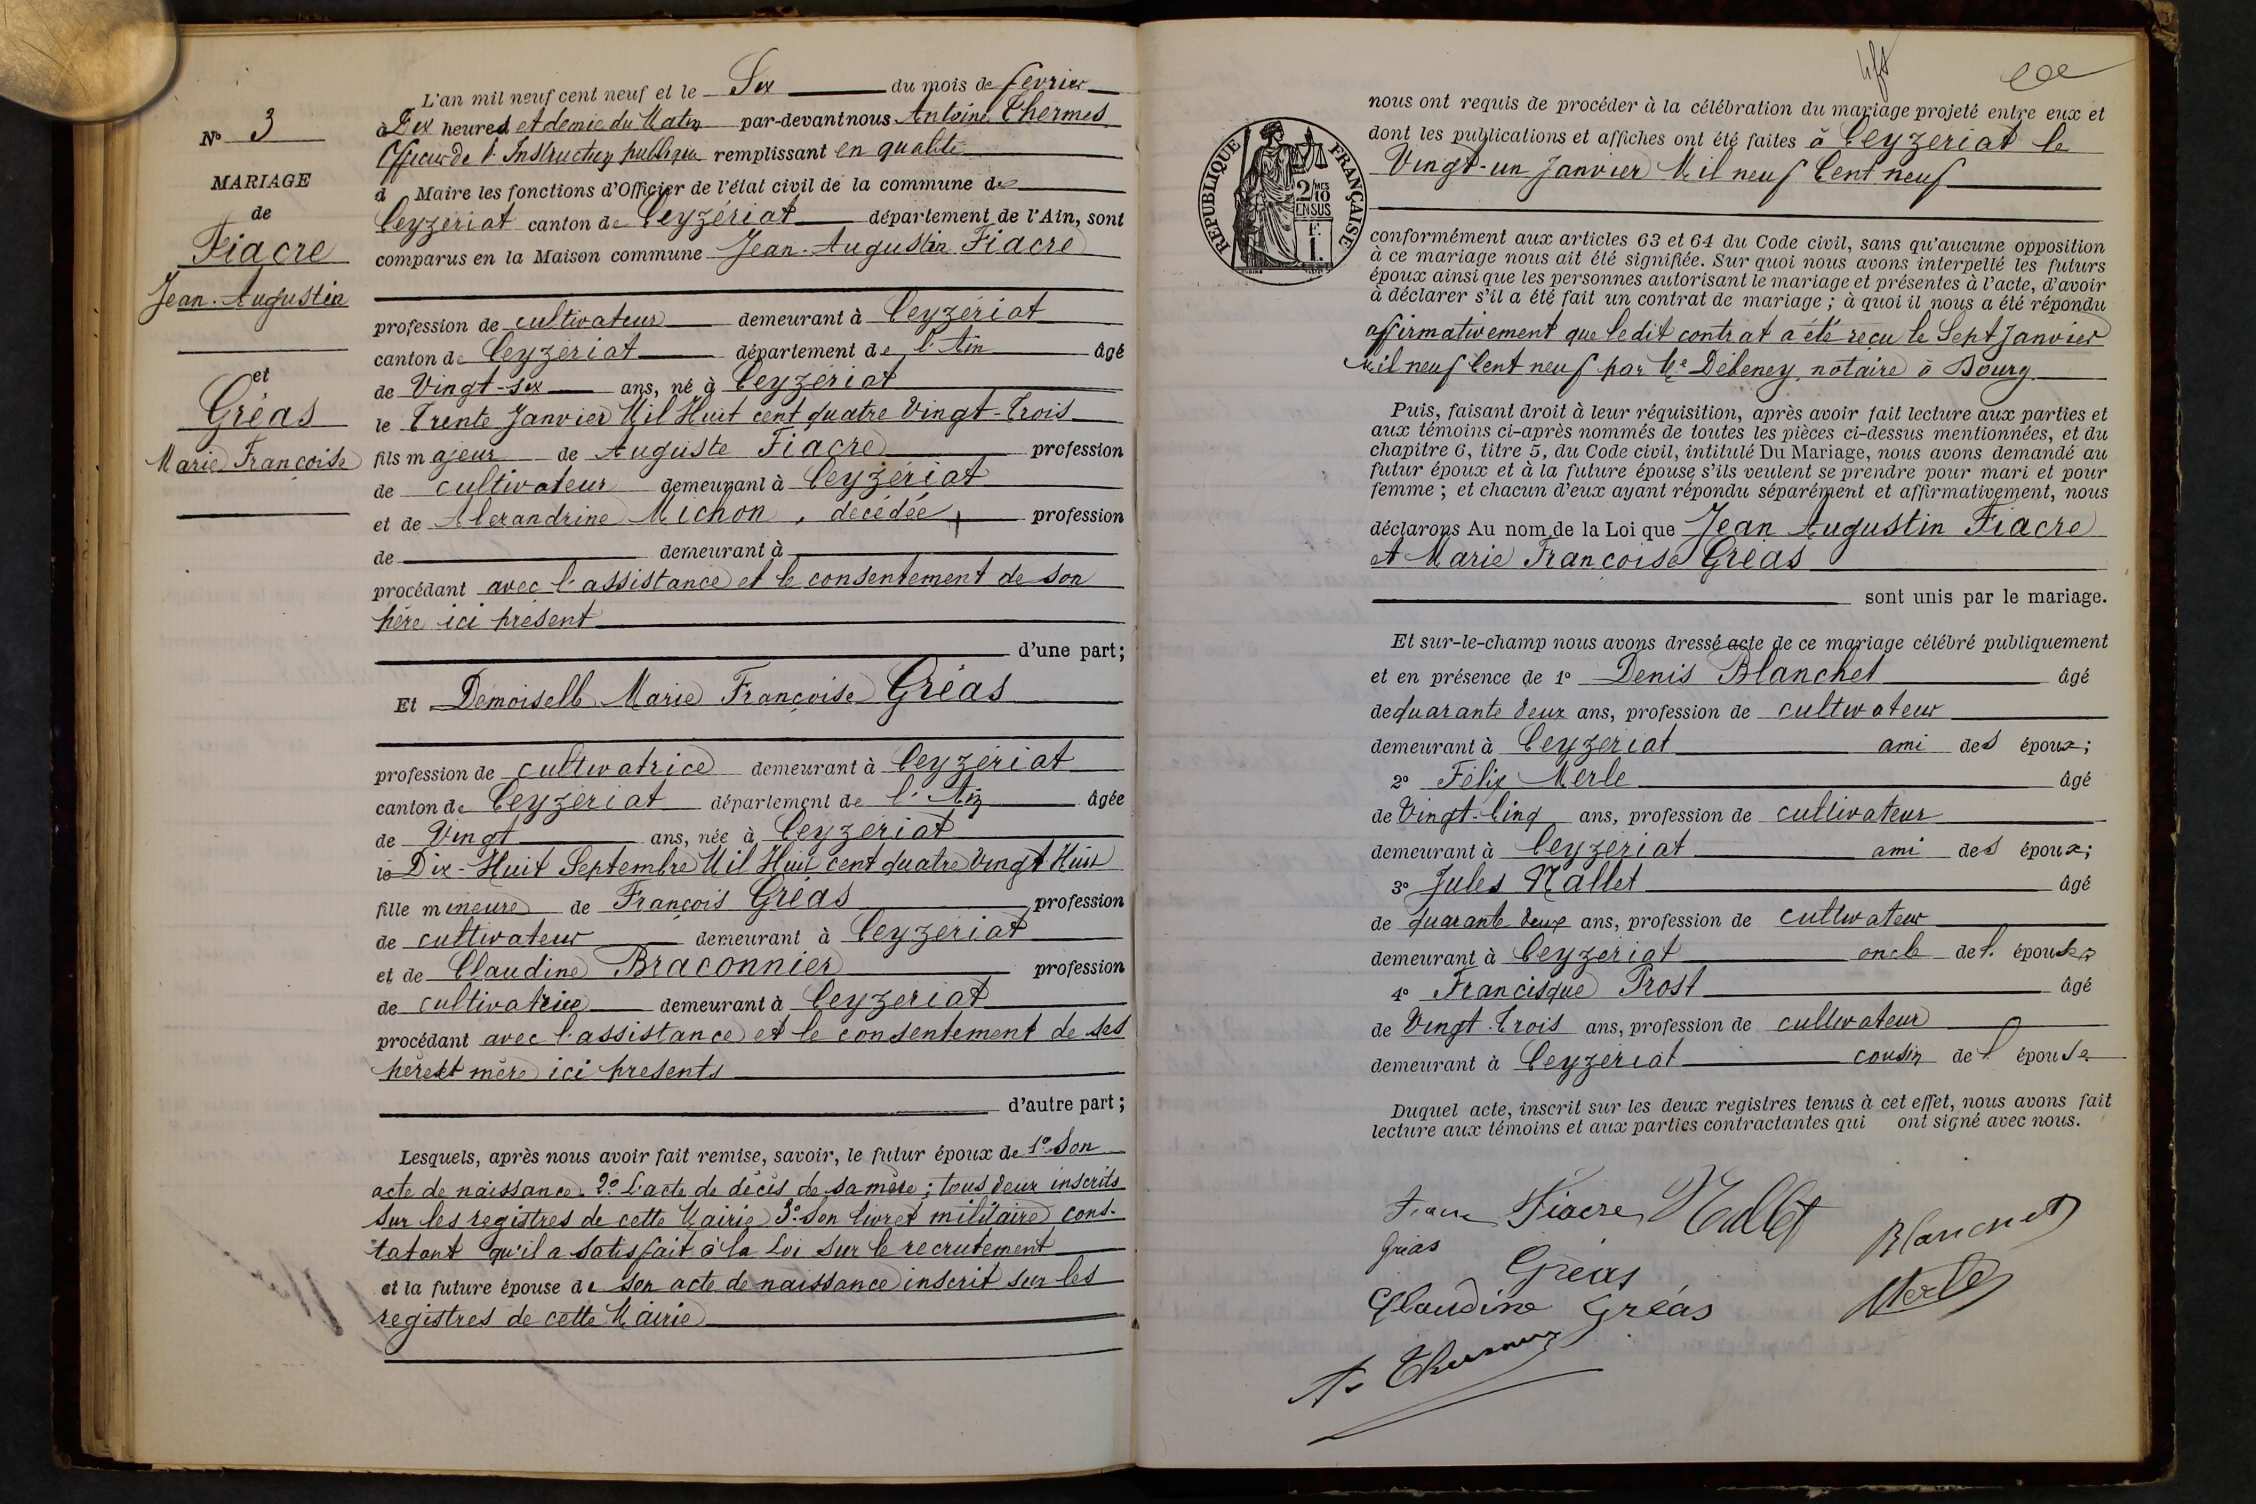 N° 3
MARIAGE
de
Fiacre
Jean-Augustin
et
Gréas
Marie Françoise
L'an mil neuf cent neuf et le Six du mois de février
à Dix heures et demie du Matin par-devant nous Antoine Thermes
Officier de l'Instruction publique remplissant en qualité
d Maire les fonctions d'Officier de l'état civil de la commune de
Ceyzériat canton de Ceyzériat département de l'Ain, sont
comparus en la Maison commune Jean-Augustin Fiacre
profession de cultivateur demeurant à Ceyzériat
canton de Ceyzériat département de l'Ain âgé
de Vingt-six ans, né à Ceyzériat
le Trente Janvier Mil Huit cent quatre Vingt-Trois
fils majeur de Auguste Fiacre profession
de cultivateur demeurant à Ceyzériat
et de Alexandrine Michon, décédée profession
de demeurant à
procédant avec l'assistance et le consentement de son
père ici présent
d'une part;
Et Demoiselle Marie Françoise Gréas
profession de cultivatrice demeurant à Ceyzériat
canton de Ceyzériat département de l'Ain âgée
de Vingt ans, née à Ceyzériat
le Dix-Huit Septembre Mil Huit cent quatre Vingt Huit
fille mineure de François Gréas profession
de cultivateur demeurant à Ceyzériat
et de Claudine Braconnier profession
de cultivatrice demeurant à Ceyzériat
procédant avec l'assistance et le consentement de ses
père et mère ici présents
d'autre part;
Lesquels, après nous avoir fait remise, savoir, le futur époux de 1° Son
acte de naissance. 2° L'acte de décès de sa mère; tous deux inscrits
sur les registres de cette Mairie 3° Son livret militaire cons-
tatant qu'il a satisfait à la Loi sur le recrutement
et la future épouse de son acte de naissance inscrit sur les
registres de cette Mairie
RÉPUBLIQUE FRANÇAISE
2/10MES
EN SUS
F.
1.
nous ont requis de procéder à la célébration du mariage projeté entre eux et
dont les publications et affiches ont été faites à Ceyzériat le
Vingt-un Janvier Mil neuf Cent neuf
conformément aux articles 63 et 64 du Code civil, sans qu'aucune opposition
à ce mariage nous ait été signifiée. Sur quoi nous avons interpellé les futurs
époux ainsi que les personnes autorisant le mariage et présentes à l'acte, d'avoir
à déclarer s'il a été fait un contrat de mariage; à quoi il nous a été répondu
affirmativement que ledit contrat a été reçu le Sept Janvier
Mil neuf Cent neuf par Me Débeney, notaire à Bourg
Puis, faisant droit à leur réquisition, après avoir fait lecture aux parties et
aux témoins ci-après nommés de toutes les pièces ci-dessus mentionnées, et du
chapitre 6, titre 5, du Code civil, intitulé Du Mariage, nous avons demandé au
futur époux et à la future épouse s'ils veulent se prendre pour mari et pour
femme; et chacun d'eux ayant répondu séparément et affirmativement, nous
déclarons Au nom de la Loi que Jean Augustin Fiacre
et Marie Françoise Gréas
sont unis par le mariage.
Et sur-le-champ nous avons dressé acte de ce mariage célébré publiquement
et en présence de 1° Denis Blanchet âgé
de quarante deux ans, profession de cultivateur
demeurant à Ceyzériat ami des époux;
2° Félix Merle âgé
de Vingt-Cinq ans, profession de cultivateur
demeurant à Ceyzériat ami des époux;
3° Jules Nallet âgé
de quarante deux ans, profession de cultivateur
demeurant à Ceyzériat oncle de l'épouse
4° Francisque Prost âgé
de Vingt-Trois ans, profession de cultivateur
demeurant à Ceyzériat cousin de l'épouse
Duquel acte, inscrit sur les deux registres tenus à cet effet, nous avons fait
lecture aux témoins et aux parties contractantes qui ont signé avec nous.
Fiacre Nallet Blanchet
Gréas
Gréas
Merle
Claudine Gréas
A. Thermes